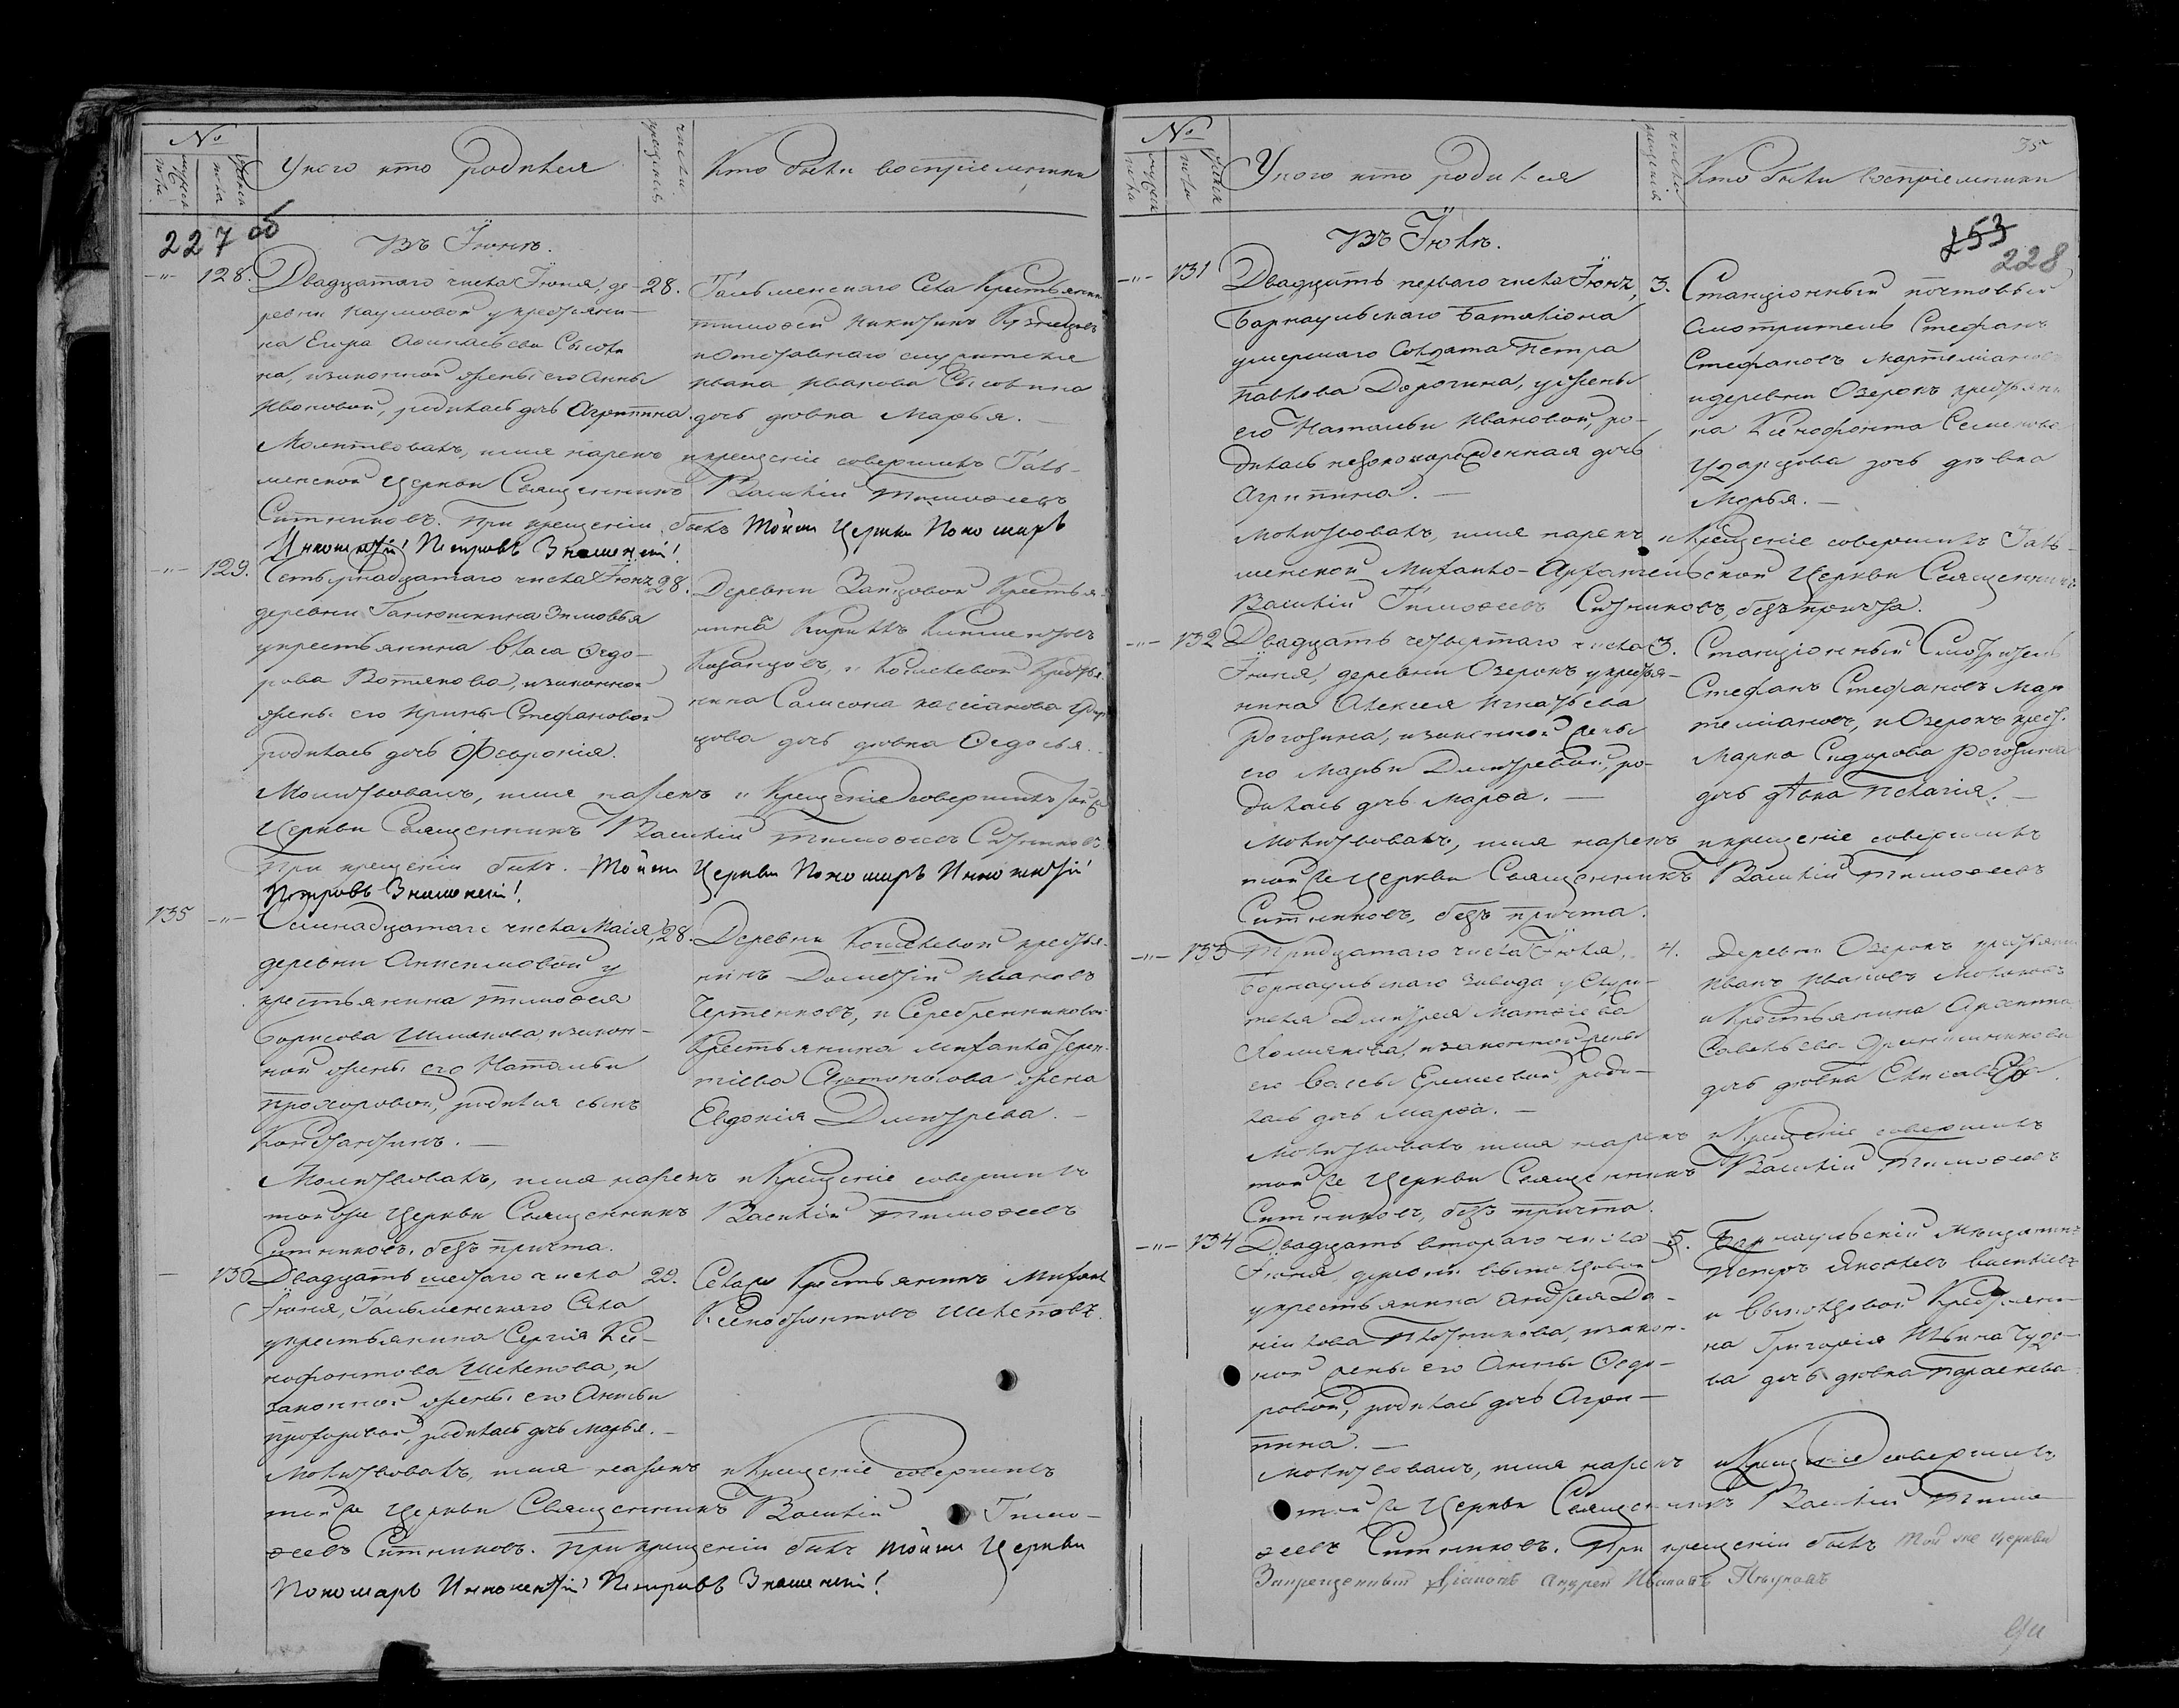 №
мужеска пола
женска пола
У кого кто родился
число крещенія
Кто были воспріемники
227 об
Въ Іюнѣ.
128.
Двадцатаго числа Іюня, де-
ревни Наумовой у крестьяни-
на Егора Афанасьева Сысоли
на, изаконной жены его Анны
Ивановой, родилась дочь Агрипина.
28.
Тальменскаго Села Крестьянинъ
Тимофей Никитинъ Кузнецовъ
и Отставнаго служителя
Ивана Иванова
дочь дѣвка Марья.
Молитвовалъ, имя нарекъ и крещеніе совершилъ Таль-
менской Церкви Священникъ Василій Тимофеевъ
Ситниковъ. При крещеніи былъ Тойже Церкви Пономарь
Инокентій Петровъ Знаменскій
129.
деревни Ганюшкина Зимовья
у крестьянина Власа Федо-
рова Вотякова, изаконной
жены его Ирины Стефановой
родилась дочь Феврониія.
28.
Деревни Зайцовой Крестья-
нинъ Кирилъ Климентовъ
Казанцовъ, и Кошелевой Кресть-
янина Самсона Касіанова
дочь дѣвка Федосья.
Молитвовалъ, имя нарекъ и Крещеніе совершилъ тойже
Церкви Священникъ Василій Тимофеевъ Ситниковъ.
При крещеніи былъ. Тойже Церкви Пономарь Инокентій
Петровъ Знаменскій
135
числа Маія,
деревни Анисимовой у
крестьянина Тимофея
Борисова Шмакова, изакон-
ной жены его Натальи
Прохоровой, родился сынъ
Константинъ.
28.
Деревни Кошелевой кресть-
нинъ Дометій Ивановъ
Чертенковъ, и Серебренниковой
Крестьянина Михаила Терен-
тіева Антонова жена
Евдокія Дмитрева.
Молитвовалъ, имя нарекъ и Крещеніе совершилъ
тойже Церкви Священникъ Василій Тимофеевъ
Ситниковъ, безъ причта.
130
Двадцать шестаго числа
Іюня, Тальменскаго Села
у крестьянина Сергія Ксе-
нофонтова Шелепова, и
законной жены его Анны
Прохоровой, родилась дочь Марья.
29.
Села Крестьянинъ Михаилъ
Ксенофонтовъ Шелеповъ.
Молитвовалъ, имя нарекъ и Крещеніе совершилъ
тойже Церкви Священникъ Василій Тимо-
феевъ Ситниковъ. При крещеніи былъ тойже Церкви
Пономарь Инокентій Петровъ Знаменскій
№
мужеска пола
женска пола
У кого кто родился
число крещенія
Кто были воспріемники
35
253
228
Въ Іюлѣ.
131
Двадцать перваго числа Іюня,
Барнаульскаго Баталіона
умершаго Солдата Петра
Павлова Дорогина, у жены
его Натальи Ивановой, ро-
дилась незаконорожденная дочь
Агрипина.
3.
Станціонный почтовый
смотритель Стефанъ
Стефановъ Мартеміановъ
и деревни Озерокъ крестьяни
на Ксенофонта Семенова
Ударцова дочь дѣвка
Марья.
Молитвовалъ, имя нарекъ и Крещеніе совершилъ Таль-
менской Михаило-Архангельской Церкви Священникъ
Василій Тимофеевъ Ситниковъ, безъ причта.
132
Двадцать четвертаго числа
Іюня, деревни Озерокъ у кресть-
нина Алексея Игнатьева
Рогозина, изаконной жены
его Марьи Дмитревой, ро-
дилась дочь Марѳа.
3.
Станціонный Смотритель
Стефанъ Стефановъ Мар
теміановъ, и Озерокъ крест.
Марка Сидорова Рогозина
дочь дѣвка Пелагія.
Молитвовалъ, имя нарекъ и крещеніе совершилъ
тойже Церкви Священникъ Василій Тимофеевъ
Ситниковъ, безъ причта.
133
Тридцатаго числа Іюня,
Барнаульскаго Завода у Служи-
теля Дмитрея Матвіева
Хомякова, изаконной жены
его Васты Ермеевой, роди-
лась дочь Марѳа.
4.
Деревни Озерокъ крестьянинъ
Иванъ Ивановъ
и Крестьянина Арсенина
Савельева
дочь дѣвка Елисавета.
Молитвовалъ имя нарекъ и Крещеніе совершилъ
тойже Церкви Священникъ Василій Тимофеевъ
Ситниковъ, безъ причта.
134
Двадцать втораго числа
Іюня, деревни
у крестьянина Андрея Да-
нилова Плотникова, изакон-
ной жены его Анны Федо-
ровой, родилась дочь Агри-
пина.
5.
Барнаульскій Мѣщанинъ
Петръ Яковлевъ Васильевъ
и Крестьяни-
на Григорія Ильина Чудо-
ва дочь дѣвка Параскева
Молитвовалъ, имя нарекъ и Крещеніе совершилъ
тойже Церкви Священникъ Василій Тимо-
феевъ Ситниковъ. При крещеніи былъ той же церкви
Запрещенный Діаконъ Андрей Ивановъ